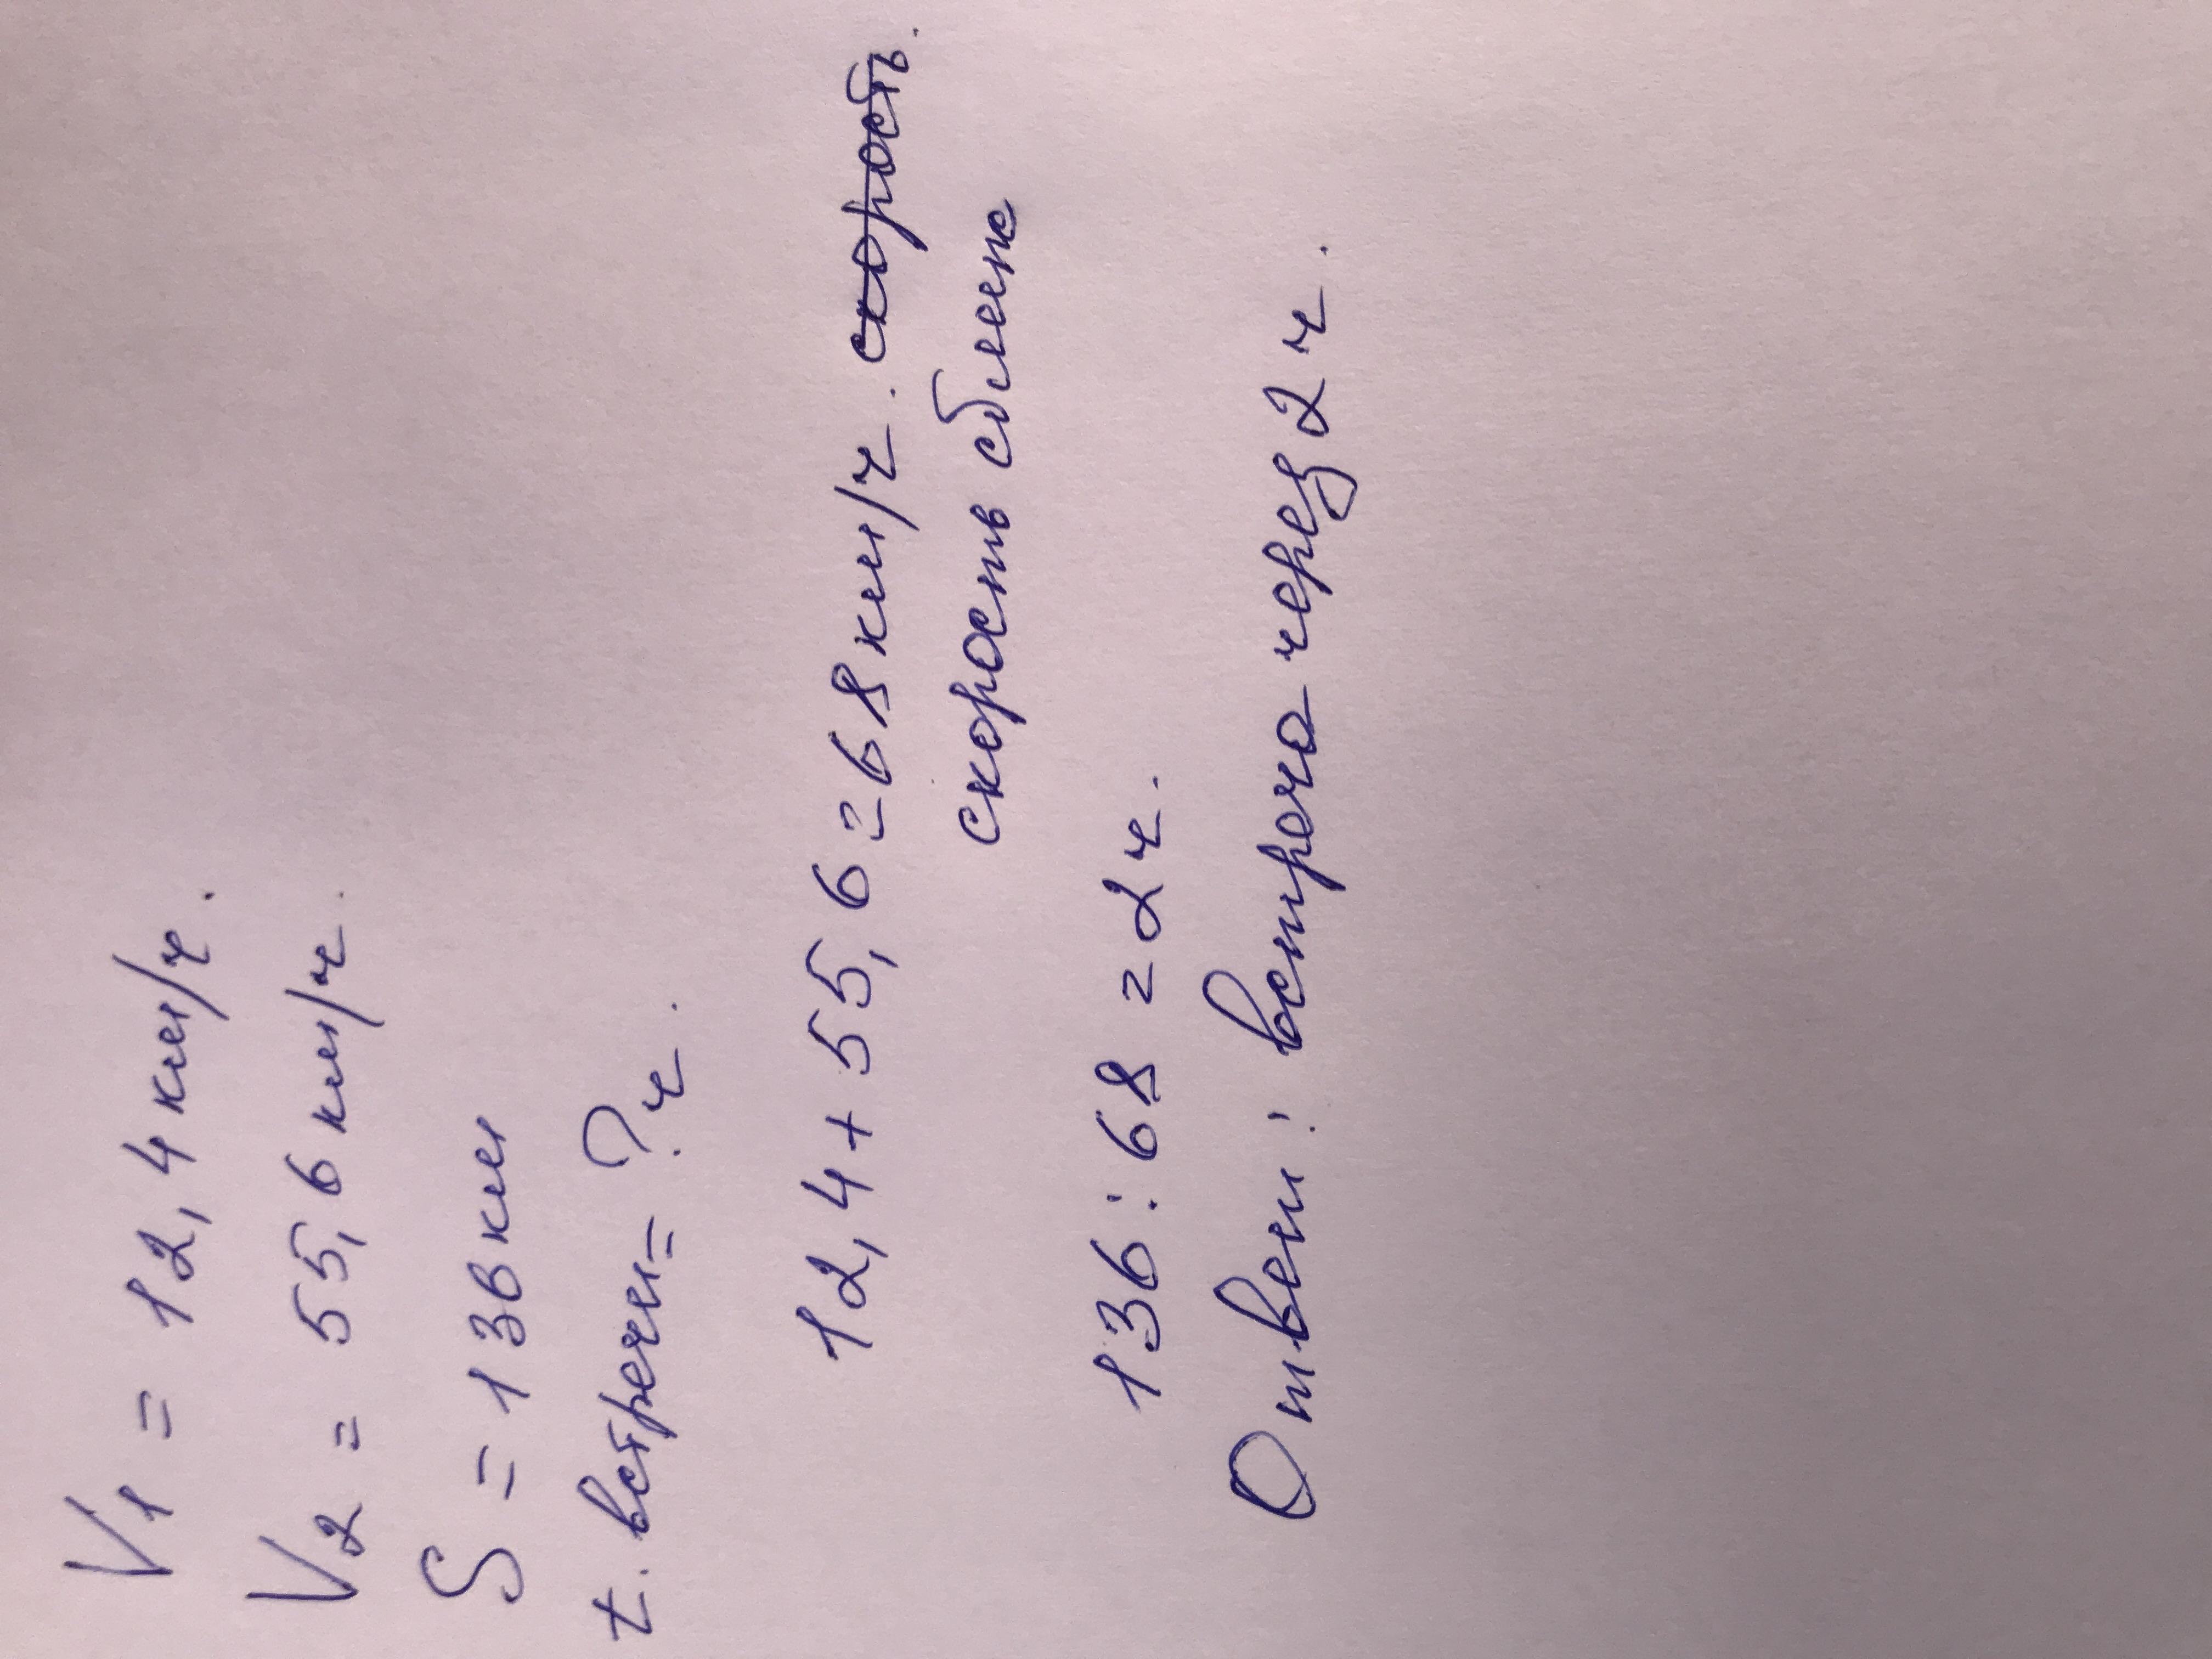 V1 = 12,4 км/ч.
V2 = 55,6 км/ч.
S = 136 км
t. встречи = ? ч.
12,4 + 55,6 = 68 км/ч. скорость.
скорость сближ
136 : 68 = 2 ч.
Ответ: встреча через 2 ч.